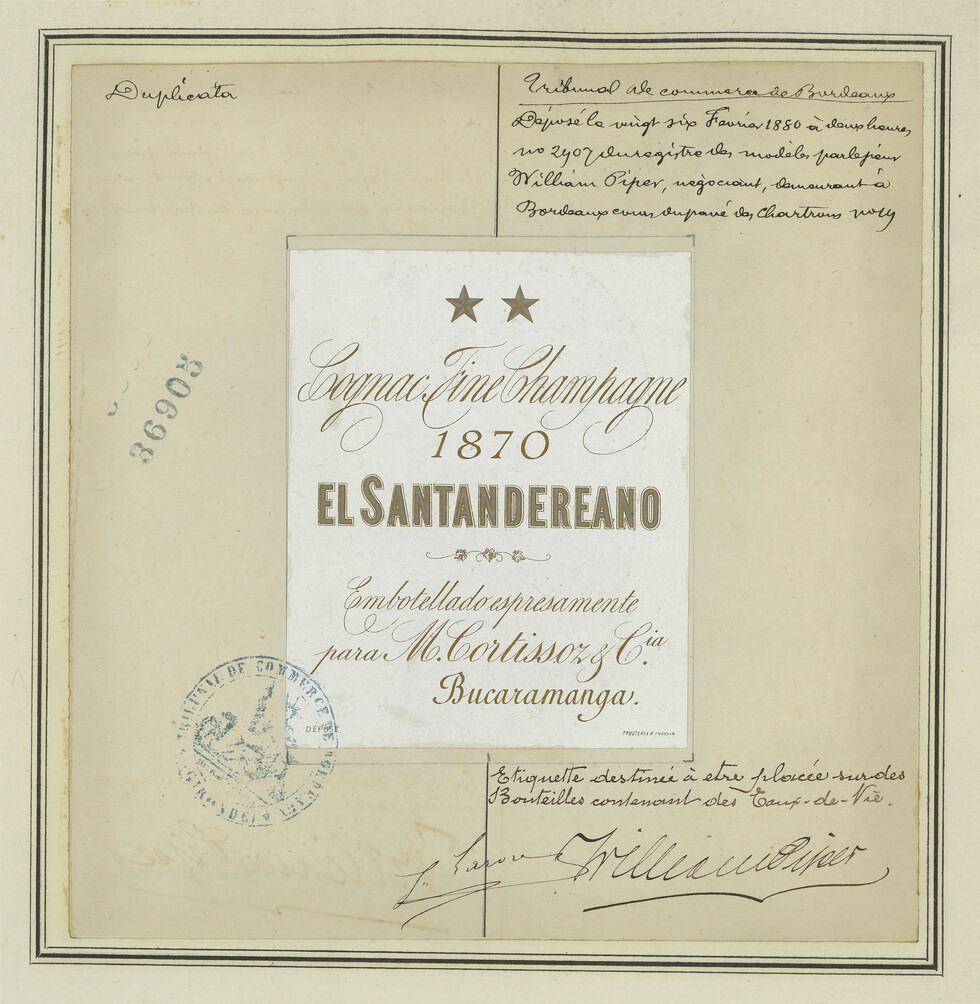 Duplicata
Tribunal de commerce de Bordeaux
Déposé le vingt six Février 1880 à deux heures
no 2907 du registre des modèles par le sieur
William Piper, négociant, demeurant à
Bordeaux cours du pavé des Chartrons no 19
36905
Cognac Fine Champagne
1870
EL SANTANDEREANO
Embotellado espresamente
para M. Cortissoz & Cia.
Bucaramanga.
DÉPOSÉ
TRIBUNAL DE COMMERCE DE BORDEAUX
(GIRONDE)
Etiquette destinée à etre placée sur des
Bouteilles contenant des Eaux-de-Vie.
William Piper